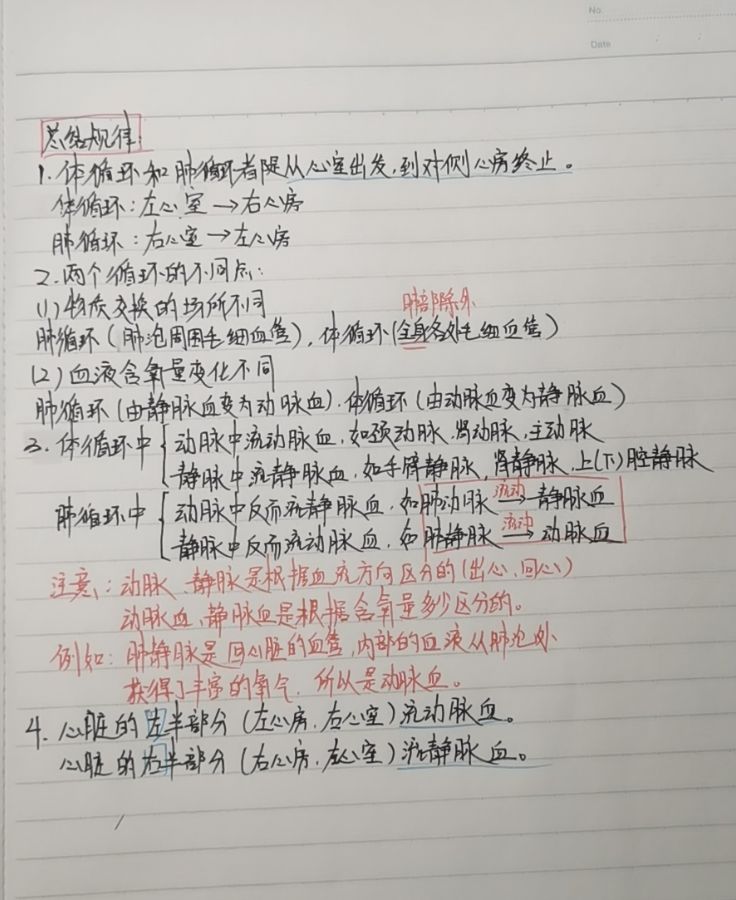 No.
Date
总结规律:
1.体循环和肺循环者陧从心室出发,到对侧心房终止。
体循环:左心室→右心房
肺循环:右心室→左心房
2.两个循环的不同点:
(1)物质交换的场所不同
肺部除外
肺循环(肺泡周围毛细血管),体循环(全身各处毛细血管)
(2)血液含氧量变化不同
肺循环(由静脉血变为动脉血).体循环(由动脉血变为静脉血)
3.体循环中{动脉中流动脉血,如颈动脉.肾动脉.主动脉
静脉中流静脉血,如手臂静脉,肾静脉,上(下)腔静脉
肺循环中{动脉中反而流静脉血,如肺动脉 流动→ 静脉血
静脉中反而流动脉血,如肺静脉 流动→ 动脉血
注意:动脉、静脉是根据血流方向区分的(出心、回心)
动脉血、静脉血是根据含氧量多少区分的。
例如:肺静脉是回心脏的血管,内部的血液从肺泡处
获得了丰富的氧气,所以是动脉血。
4.心脏的左半部分(左心房.右心室)流动脉血。
心脏的右半部分(右心房.左心室)流静脉血。